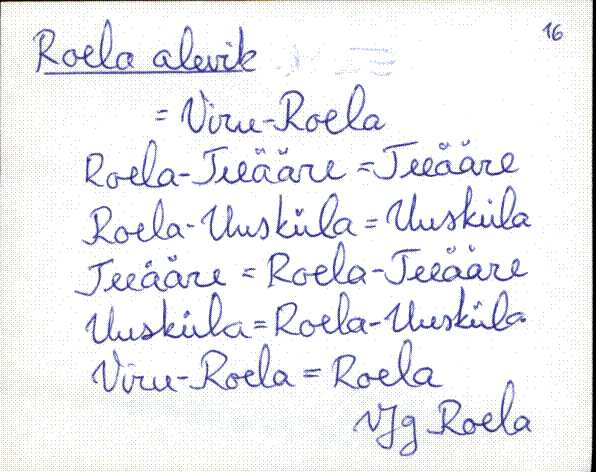 16
Roela alevik
= Viru-Roela
Roela-Teeääre = Teeääre
Roela-Uusküla = Uusküla
Teeääre = Roela-Teeääre
Uusküla = Roela-Uusküla
Viru-Roela = Roela
VJg Roela